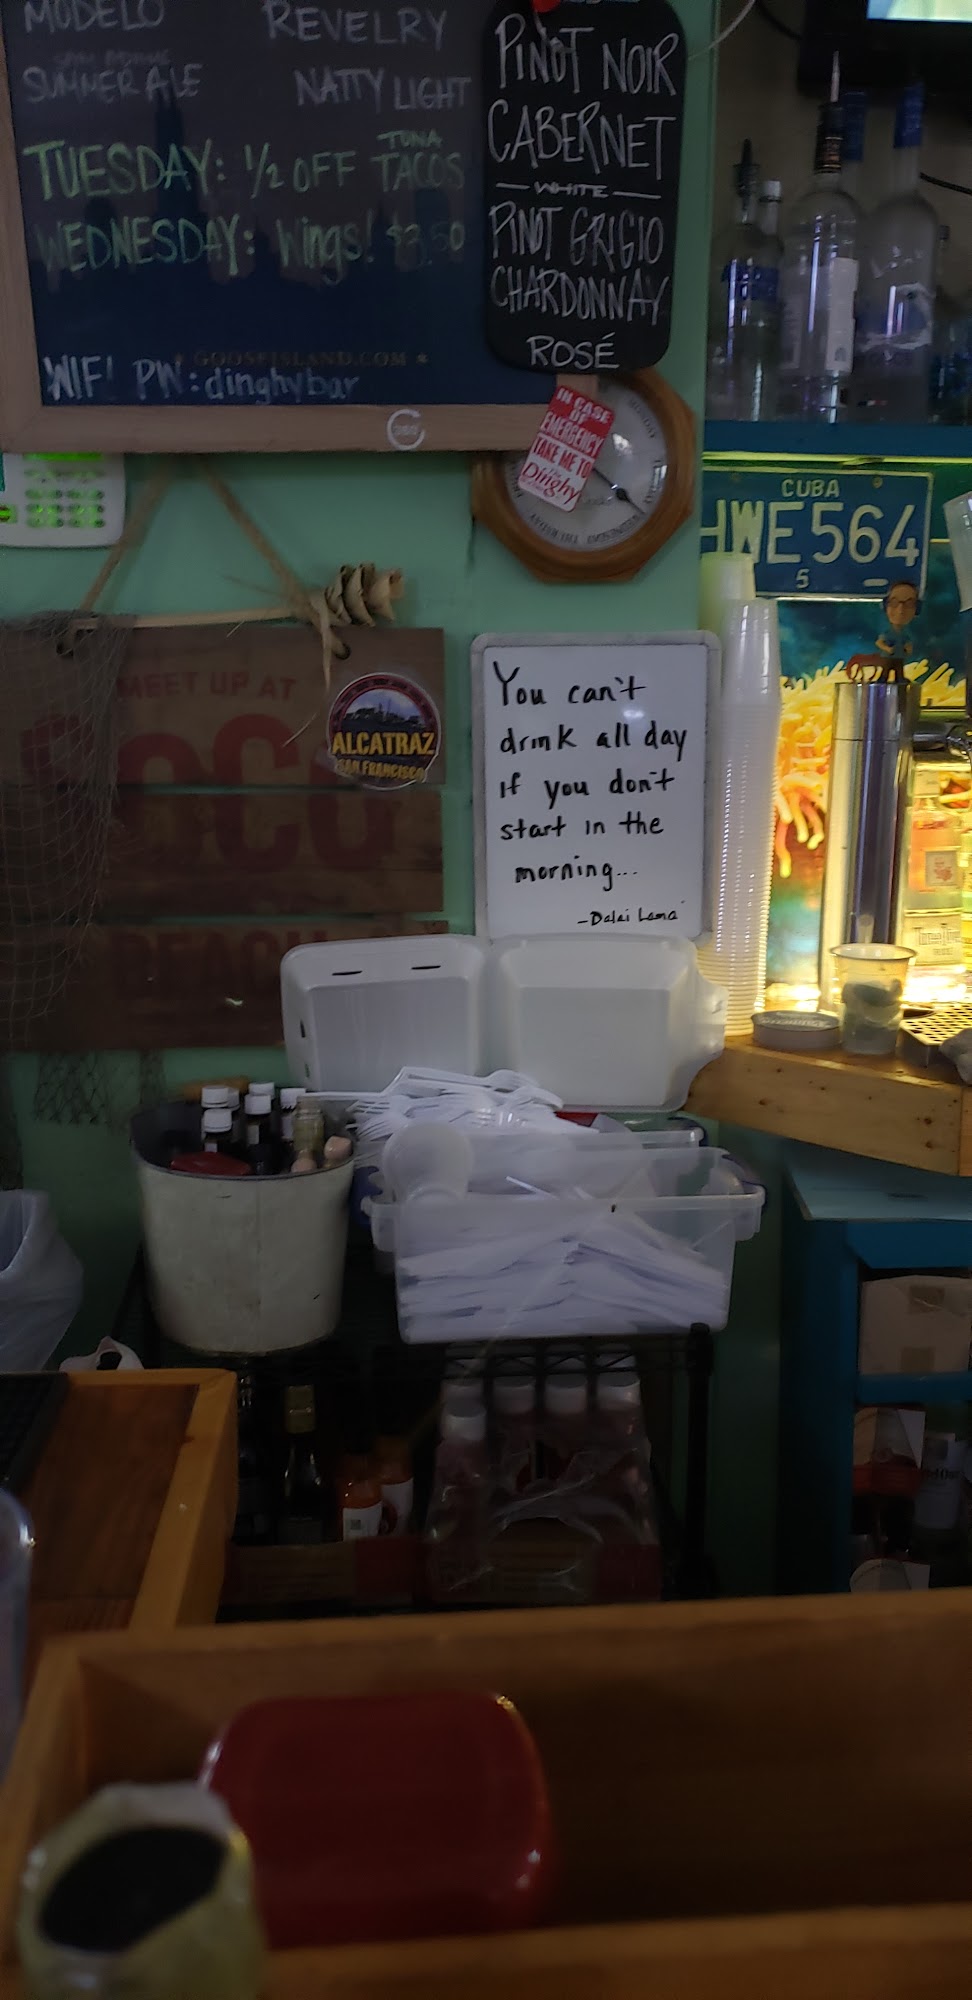 MODELO REVELRY
SUMMER ALE NATTY LIGHT
TUESDAY: 1/2 OFF TUNA TACOS
WEDNESDAY: Wings! $3.50
GOOSEISLAND.COM
WIFI PW: dinghybar
PINOT NOIR
CABERNET
WHITE
PINOT GRIGIO
CHARDONNAY
ROSÉ
IN CASE
OF
EMERGENCY
TAKE ME TO
The
Dinghy
CUBA
HWE564
5
MEET UP AT
BEACH
ALCATRAZ
SAN FRANCISCO
You can't
drink all day
if you don't
start in the
morning...
-Dalai Lama